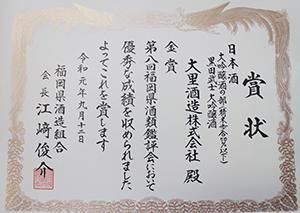 賞状
日本酒
大吟醸酒の部
黒田武士 大吟醸酒
大里酒造株式会社 殿
金賞
第八回福岡県酒類鑑評会において
優秀な成績を収められました
よってこれを賞します
令和元年九月十二日
福岡県酒造組合
会長 江﨑俊介